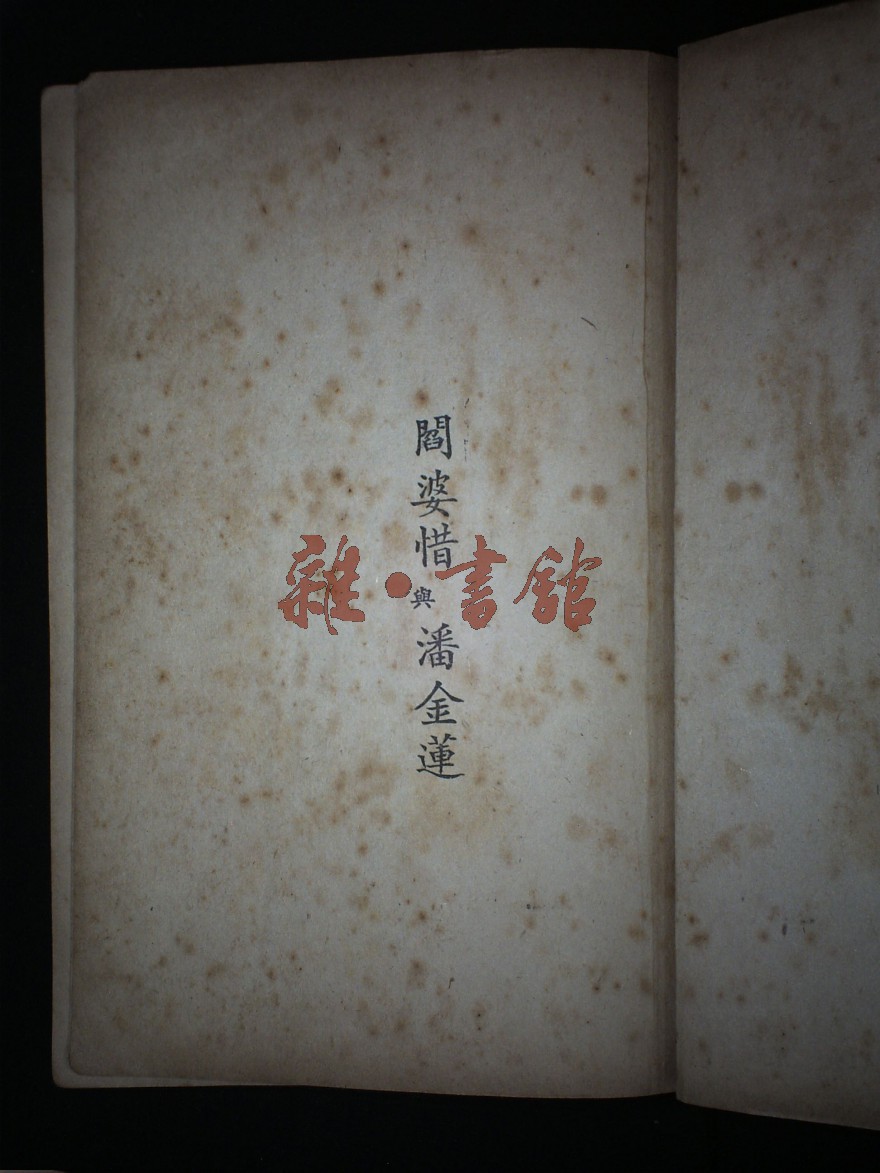 閻婆惜與潘金蓮
雜·書館